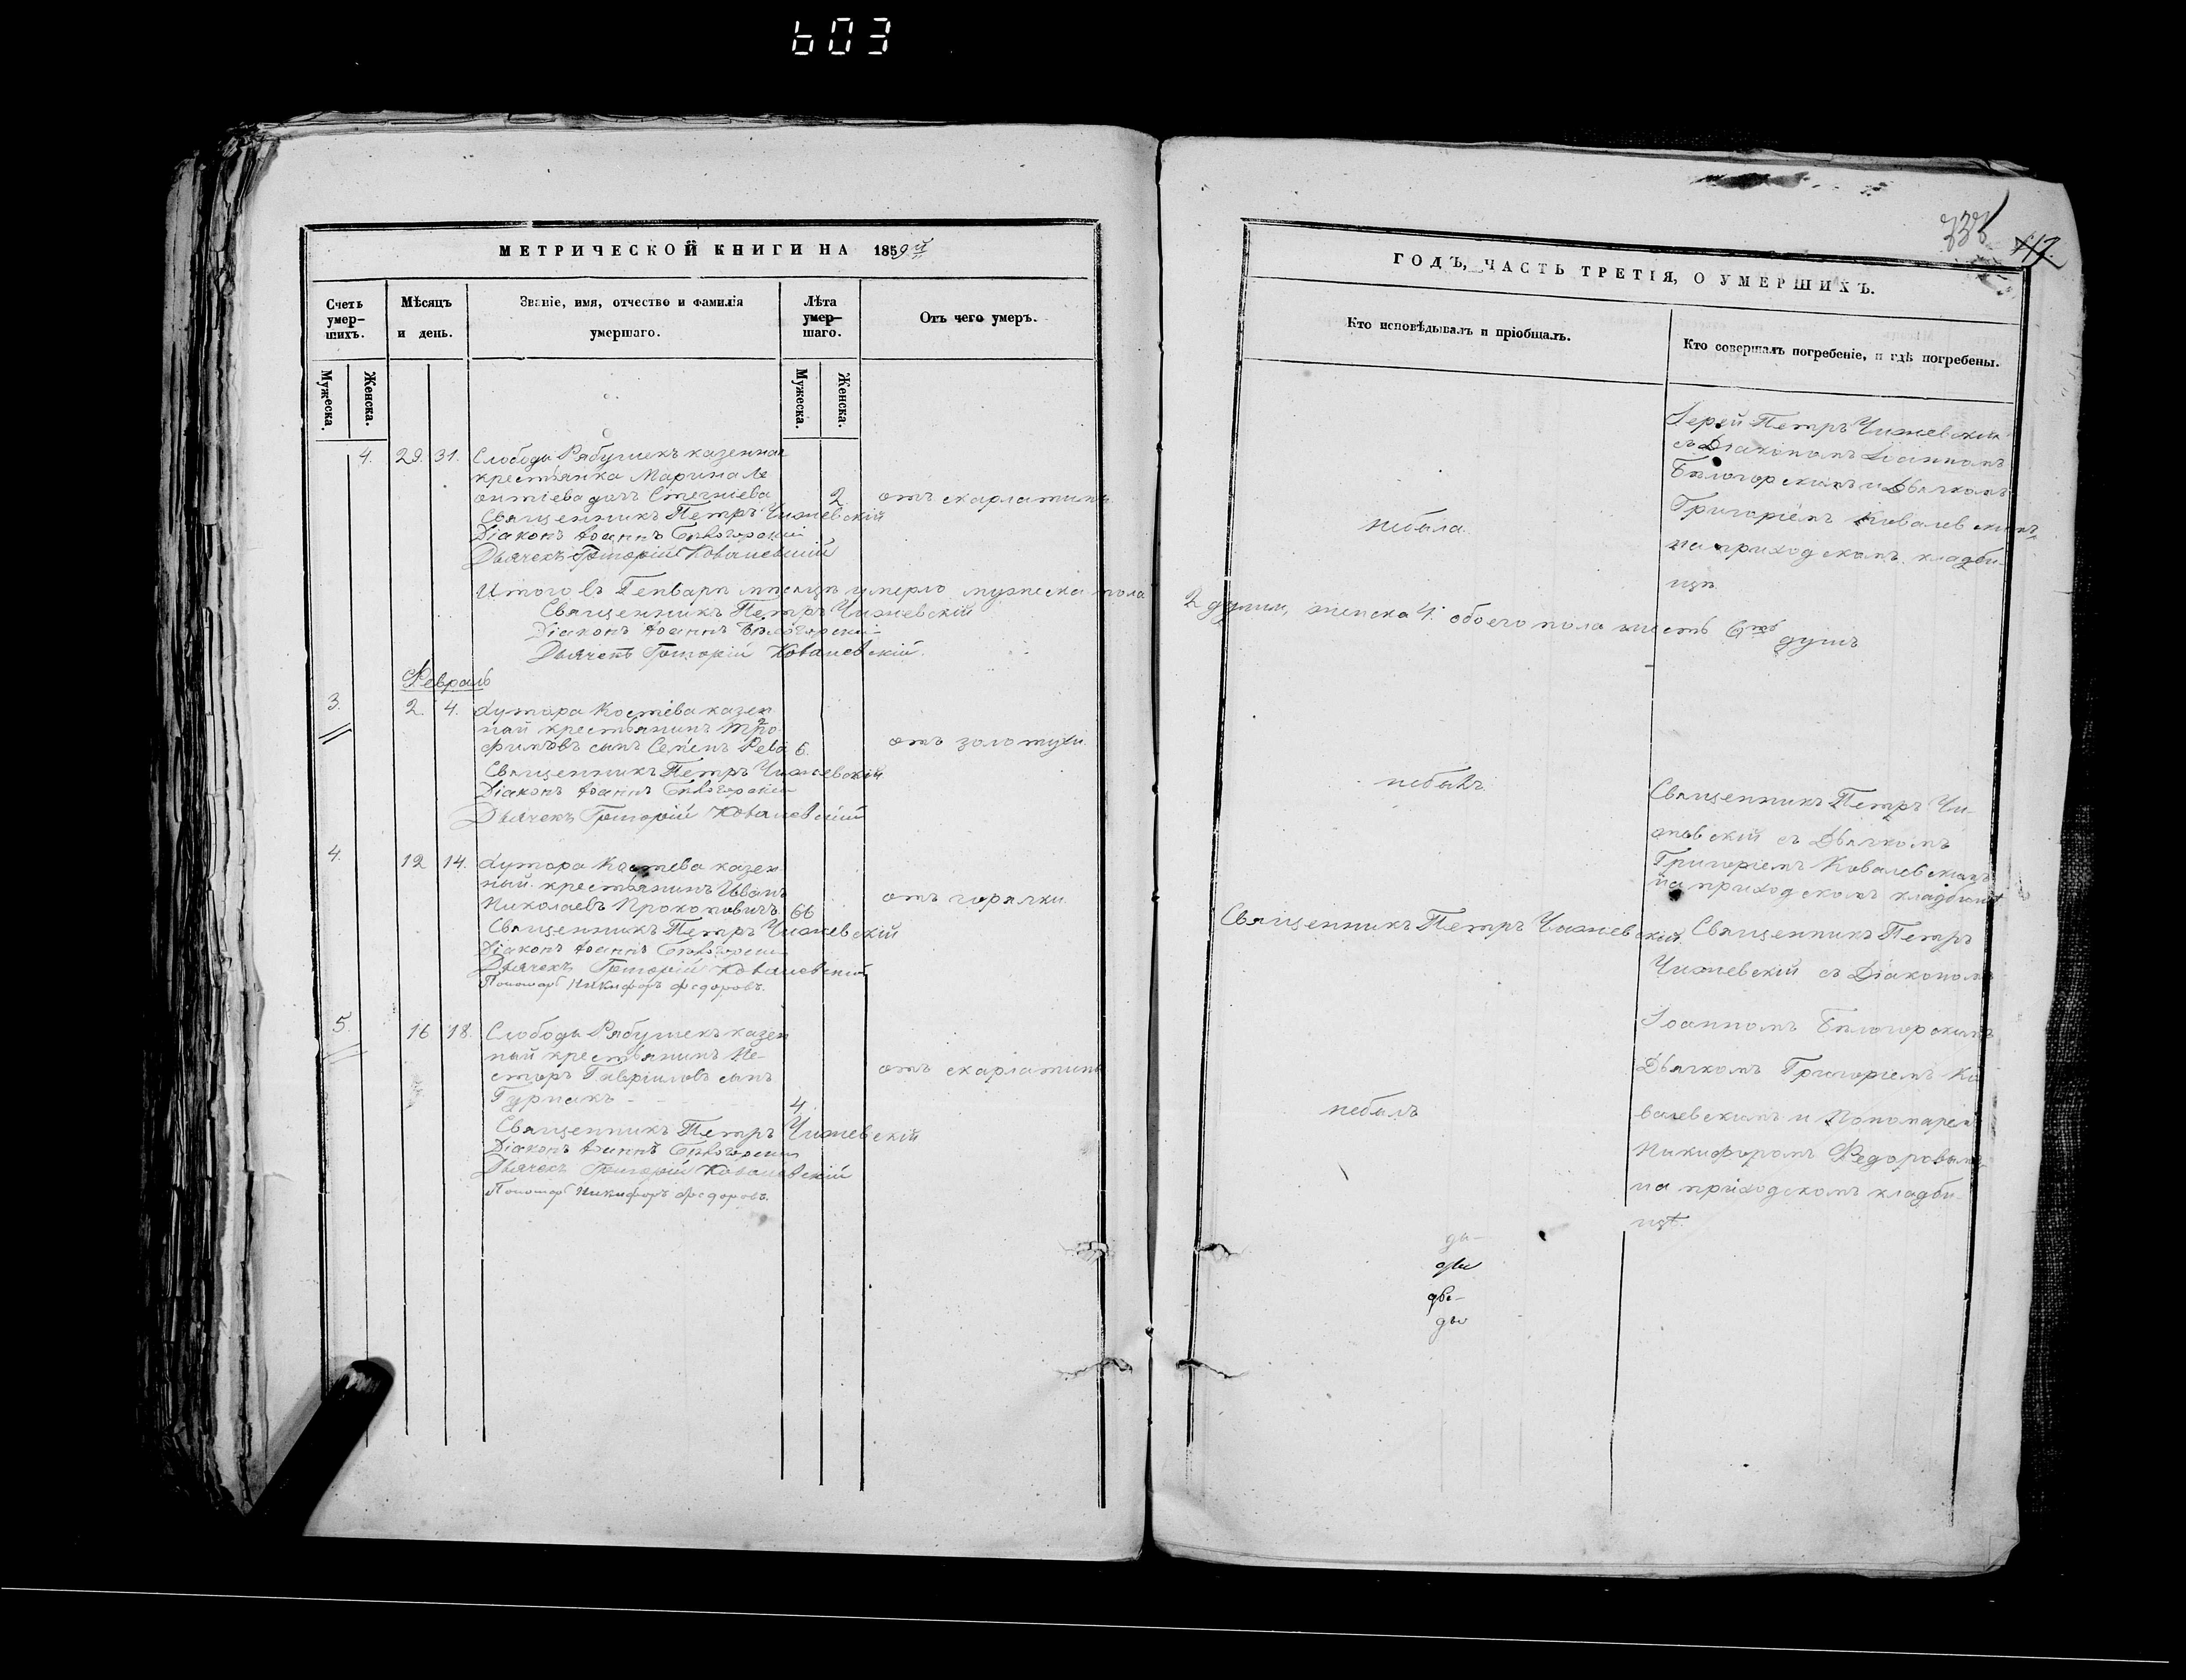 603
МЕТРИЧЕСКОЙ КНИГИ НА 1859й
Счетъ умер-шихъ.
Мѣсяцъ и день.
Званіе, имя, отчество и фамилія умершаго.
Лѣта умер-шаго.
Отъ чего умеръ.
Мужеска.
Женска.
Мужеска.
Женска.
4. 29. 31. Слободы Рябушекъ казенная
крестьянка Марина Ле
онтіева дочь Стегніева 2 отъ скарлатины
Священникъ Петръ Чижевскій
Діаконъ Іоаннъ Бѣлогорскій
Дьячекъ Григорій Ковалевскій
Итого въ Генваре мѣсяцѣ умерло мужеска пола
Священникъ Петръ Чижевскій
Діаконъ Іоаннъ Бѣлогорскій
Дьячекъ Григорій Ковалевскій.
Февраль
3. 2. 4. Хутора Костева казен
ный крестьянинъ Тро
фимовъ сынъ Семенъ Рева 6. отъ золотухи.
Священникъ Петръ Чижевскій
Діаконъ Іоаннъ Бѣлогорскій
Дьячекъ Григорій Ковалевскій
4. 12 14. Хутора Костева казен
ный крестьянинъ Иванъ
Николаевъ Прокоповичъ 66 отъ горячки.
Священникъ Петръ Чижевскій
Діаконъ Іоаннъ Бѣлогорскій
Дьячекъ Григорій Ковалевскій
Пономарь Никифоръ Федоровъ.
5. 16 18. Слободы Рябушекъ казен
ный крестьянинъ Не-
сторъ Гавріиловъ сынъ отъ скарлатины
Гурнакъ 4.
Священникъ Петръ Чижевскій
Діаконъ Іоаннъ Бѣлогорскій
Дьячекъ Григорій Ковалевскій
Пономарь Никифоръ Федоровъ.
ГОДЪ, ЧАСТЬ ТРЕТІЯ, О УМЕРШИХЪ.
Кто исповѣдывалъ и пріобщалъ.
Кто совершалъ погребеніе, и гдѣ погребены.
Іерей Петръ Чижевскій
съ Діакономъ Іоанномъ
Бѣлогорскимъ и Дьячкомъ
Григоріемъ Ковалевскимъ
небыла.
на приходскомъ кладби-
щѣ.
2 души, женска 4. обоего пола шесть 6ть душъ
небылъ
Священникъ Петръ Чи-
жевскій съ Дьячкомъ
Григоріемъ Ковалевскимъ
на приходскомъ кладбищѣ
Священникъ Петръ Чижевскій.
Священникъ Петръ
Чижевскій съ Діакономъ
Іоанномъ Бѣлогорскимъ
Дьячкомъ Григоріемъ Ко
небылъ
валевскимъ и Пономаремъ
Никифоромъ Федоровымъ
на приходскомъ кладби-
щѣ.